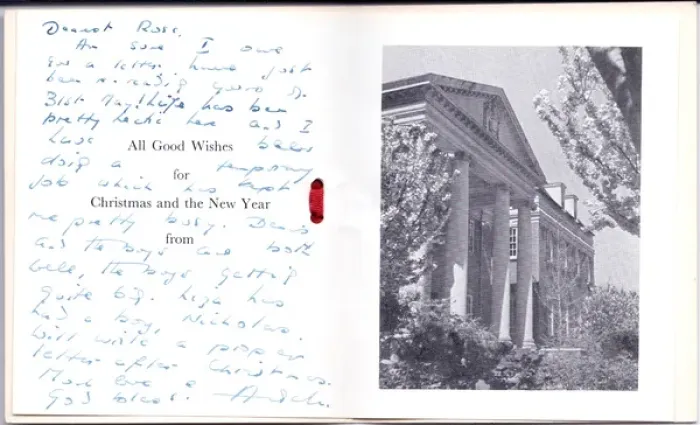 Dearest Rose,
Am sure I owe
you a letter, have just
been re-reading yours of
31st May! Life has been
pretty hectic here and I
have been
All Good Wishes
doing a temporary
for
job which has kept
Christmas and the New Year
me pretty busy.
from
and the boys are both
well, the boys getting
quite big. Liza has
had a boy, Nicholas.
Will write a proper
letter after Christmas.
Much love &
God bless.